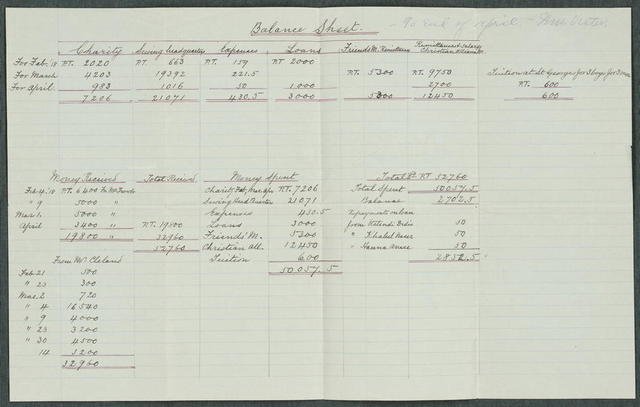 Balance Sheet. - To end of April. -
Charity Sewing headquarters Expenses Loans Friends M. Remittance Remittances & Salary Christian Alliance
For Feb. '18 P.T. 2020 P.T. 663 P.T. 159 P.T. 2000
For March 4203 19392 221.5 P.T. 5300 P.T. 9750 Tuition at St Georges for 3 boys for 3 mos.
For April 983 1016 50 1000 2700 P.T. 600
7206 21071 430.5 3000 5300 12450 600
Money Received Total Received Money Spent Total Rec. P.T. 52760
Feb 4. '18 P.T. 6400 Fr. Mr. Charity Feb, Mar, Apr. P.T. 7206 Total Spent 50057.5
" 9 5000 " Sewing Head Quarters 21071 Balance 2702.5
Mar 1. 5000 " Expenses 430.5 Repayments on loan
April 3400 " P.T. 19800 Loans 3000 from 50
19800 " 32960 Friends' M. 5300 " Khaleel 50
52760 Christian All. 12450 " Hanna 50
From Mr. Cleland Tuition 600 2852.5 "
Feb 21 500 50,057.5
" 23 300
Mar. 2 720
" 4 16540
" 9 4000
" 23 3200
" 30 4500
14 3200
32960